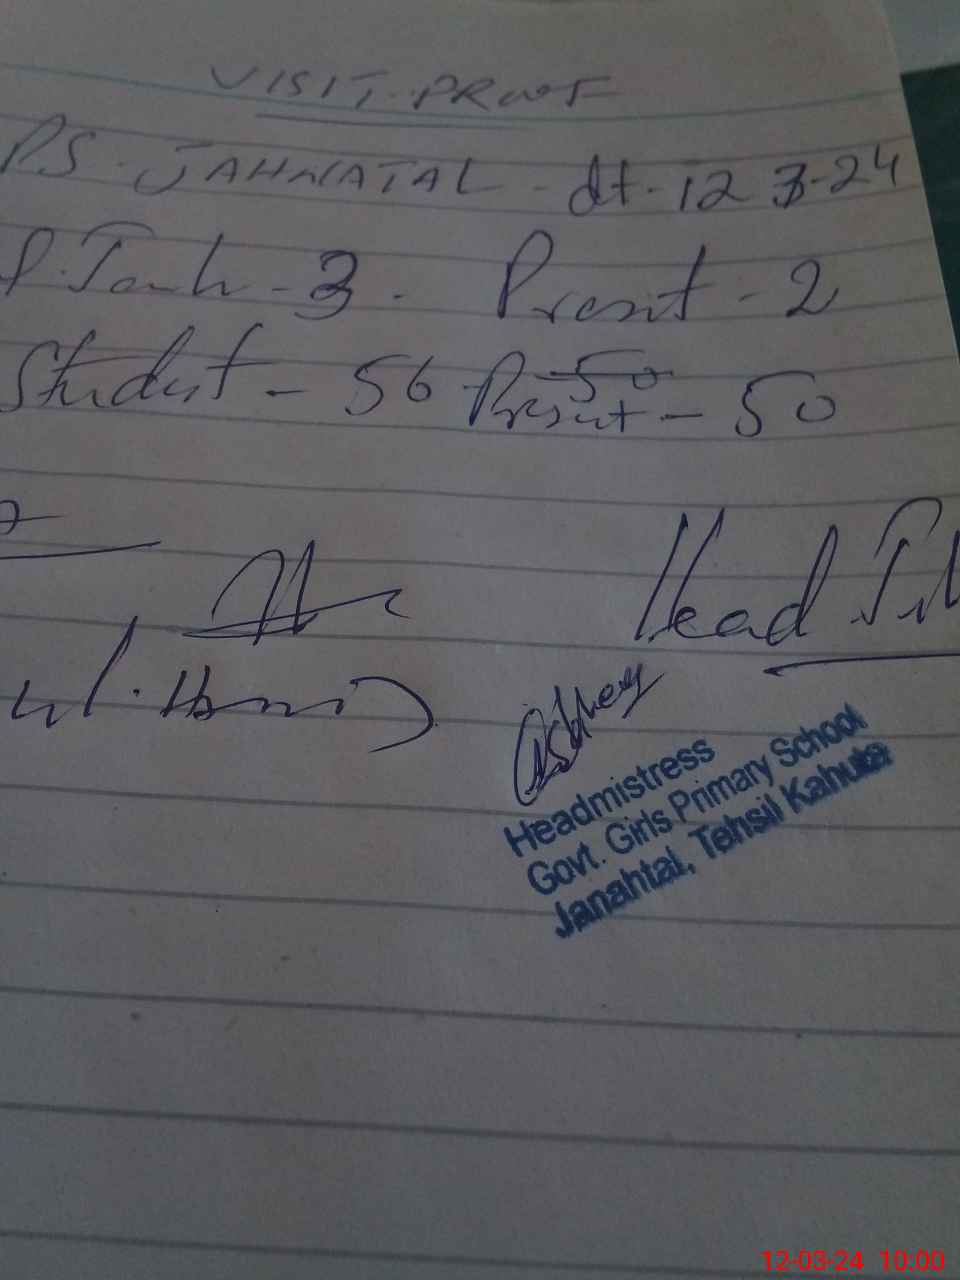 VISIT. PROOF
PS. JAHNATAL - dt. 12 3-24
- 3. Present - 2
Student - 56 Present - 50
50
Head
Headmistress
Govt. Girls Primary School
Janahtal, Tehsil Kahuta
12-03-24 10:00